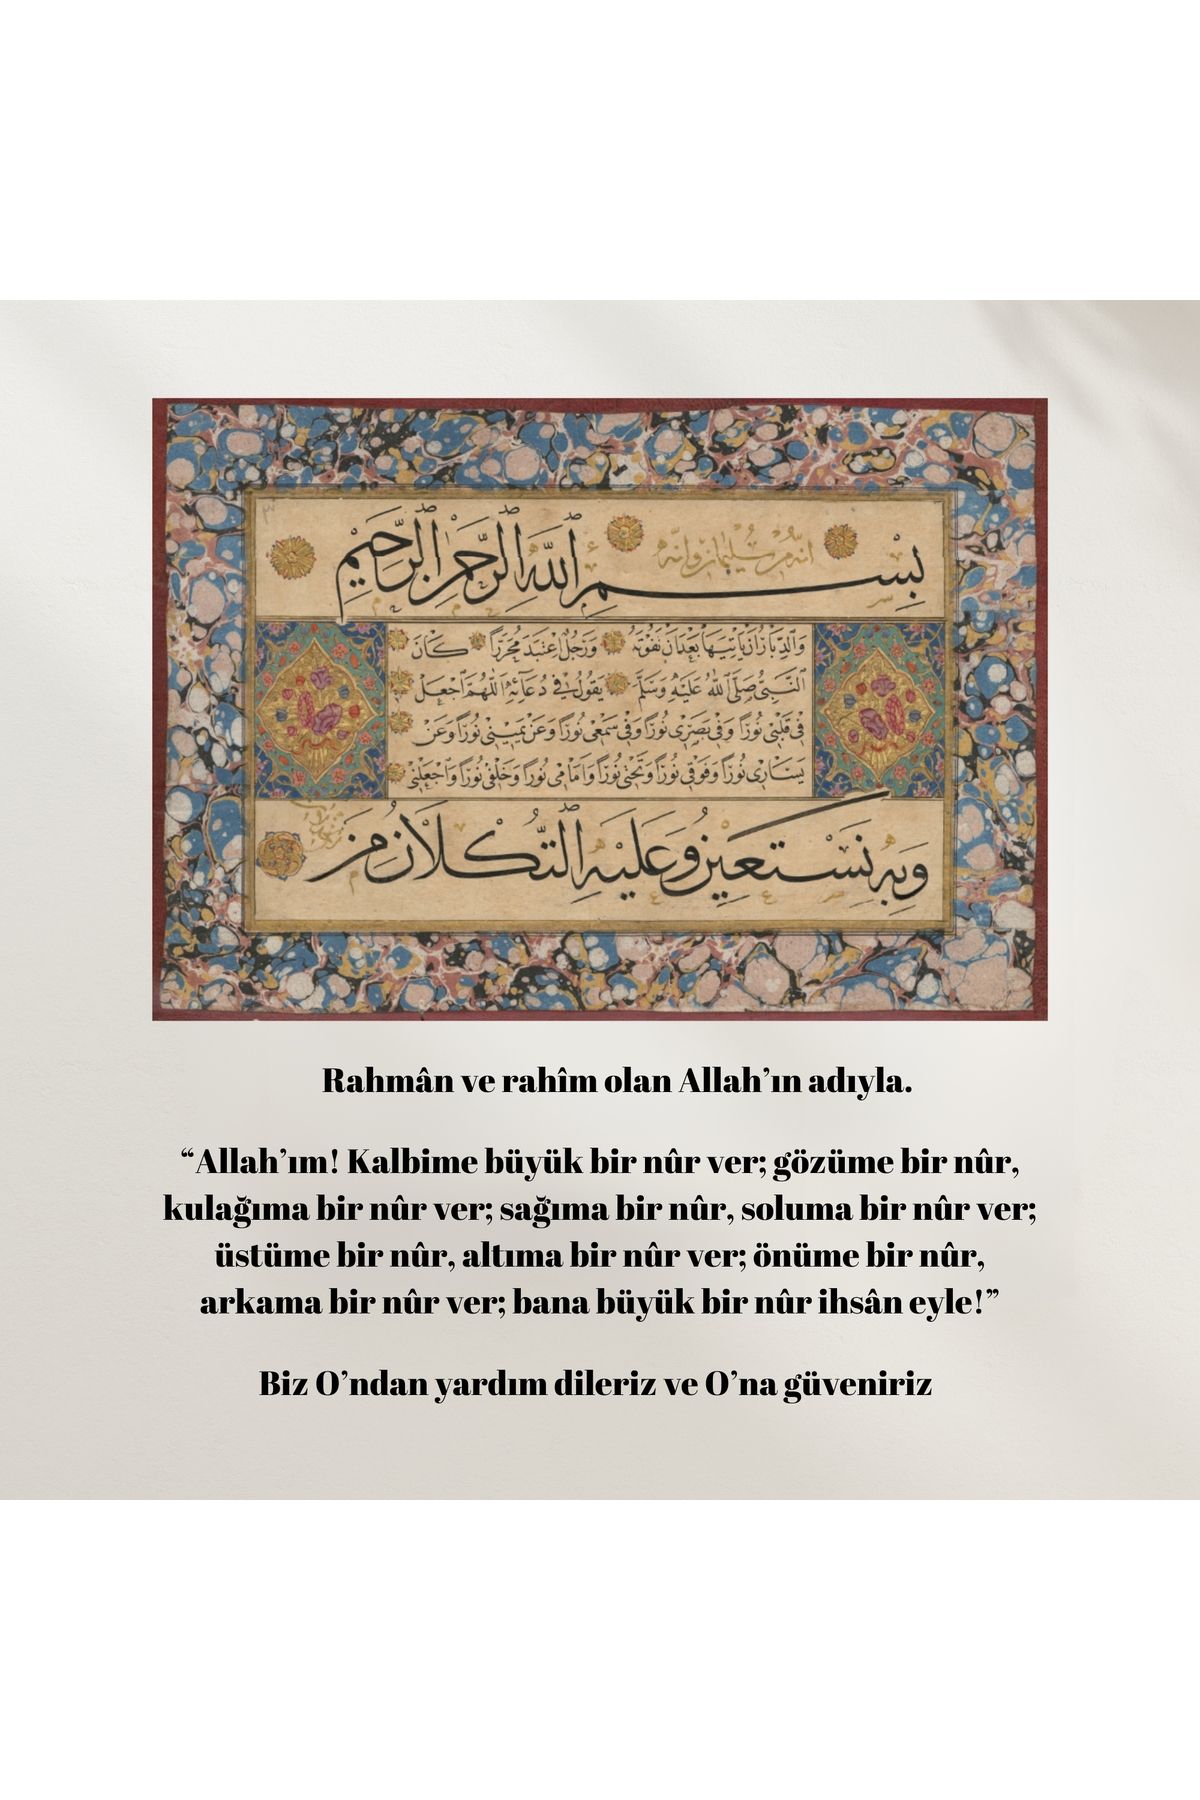 بِسْمِ اللَّهِ الرَّحْمَنِ الرَّحِيمِ
انه من سليمان وانه
وَالدِّبَارُ أَنْ يَأْتِيَهَا بَعْدَ أَنْ تَفُوتَهُ وَرَجُلٌ اعْتَبَدَ مُحَرَّرًا كَانَ
النَّبِيُّ صَلَّى اللَّهُ عَلَيْهِ وَسَلَّمَ يَقُولُ فِي دُعَائِهِ اللَّهُمَّ اجْعَلْ
فِي قَلْبِي نُورًا وَفِي بَصَرِي نُورًا وَفِي سَمْعِي نُورًا وَعَنْ يَمِينِي نُورًا وَعَنْ
يَسَارِي نُورًا وَفَوْقِي نُورًا وَتَحْتِي نُورًا وَأَمَامِي نُورًا وَخَلْفِي نُورًا وَاجْعَلْنِي
وَبِهِ نَسْتَعِينُ وَعَلَيْهِ التُّكْلَانُ مِنْ
Rahmân ve rahîm olan Allah’ın adıyla.
“Allah’ım! Kalbime büyük bir nûr ver; gözüme bir nûr,
kulağıma bir nûr ver; sağıma bir nûr, soluma bir nûr ver;
üstüme bir nûr, altıma bir nûr ver; önüme bir nûr,
arkama bir nûr ver; bana büyük bir nûr ihsân eyle!”
Biz O’ndan yardım dileriz ve O’na güveniriz